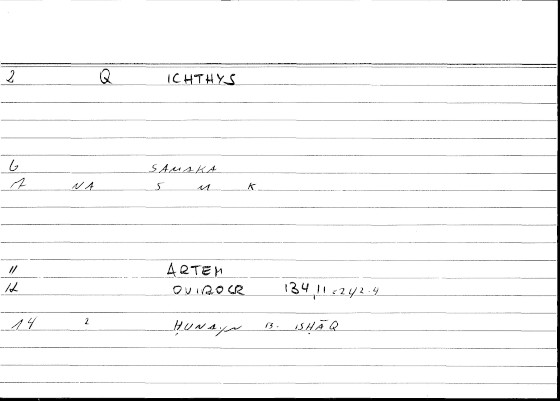 2 Q ICHTHYS
6 SAMAKA
17 NA S M K
11 ARTEM
12 OUIROCR 134,11 = 242.4
14 2 ḤUNAYN B. ISḤĀQ